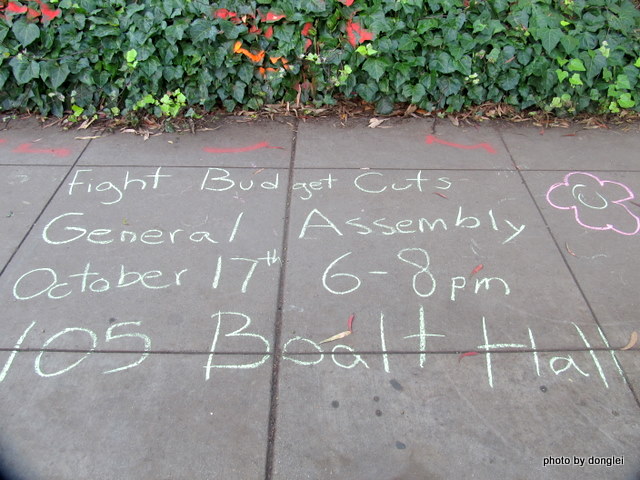 Fight Budget Cuts
General Assembly
October 17th 6-8pm
105 Boalt Hall
photo by donglei